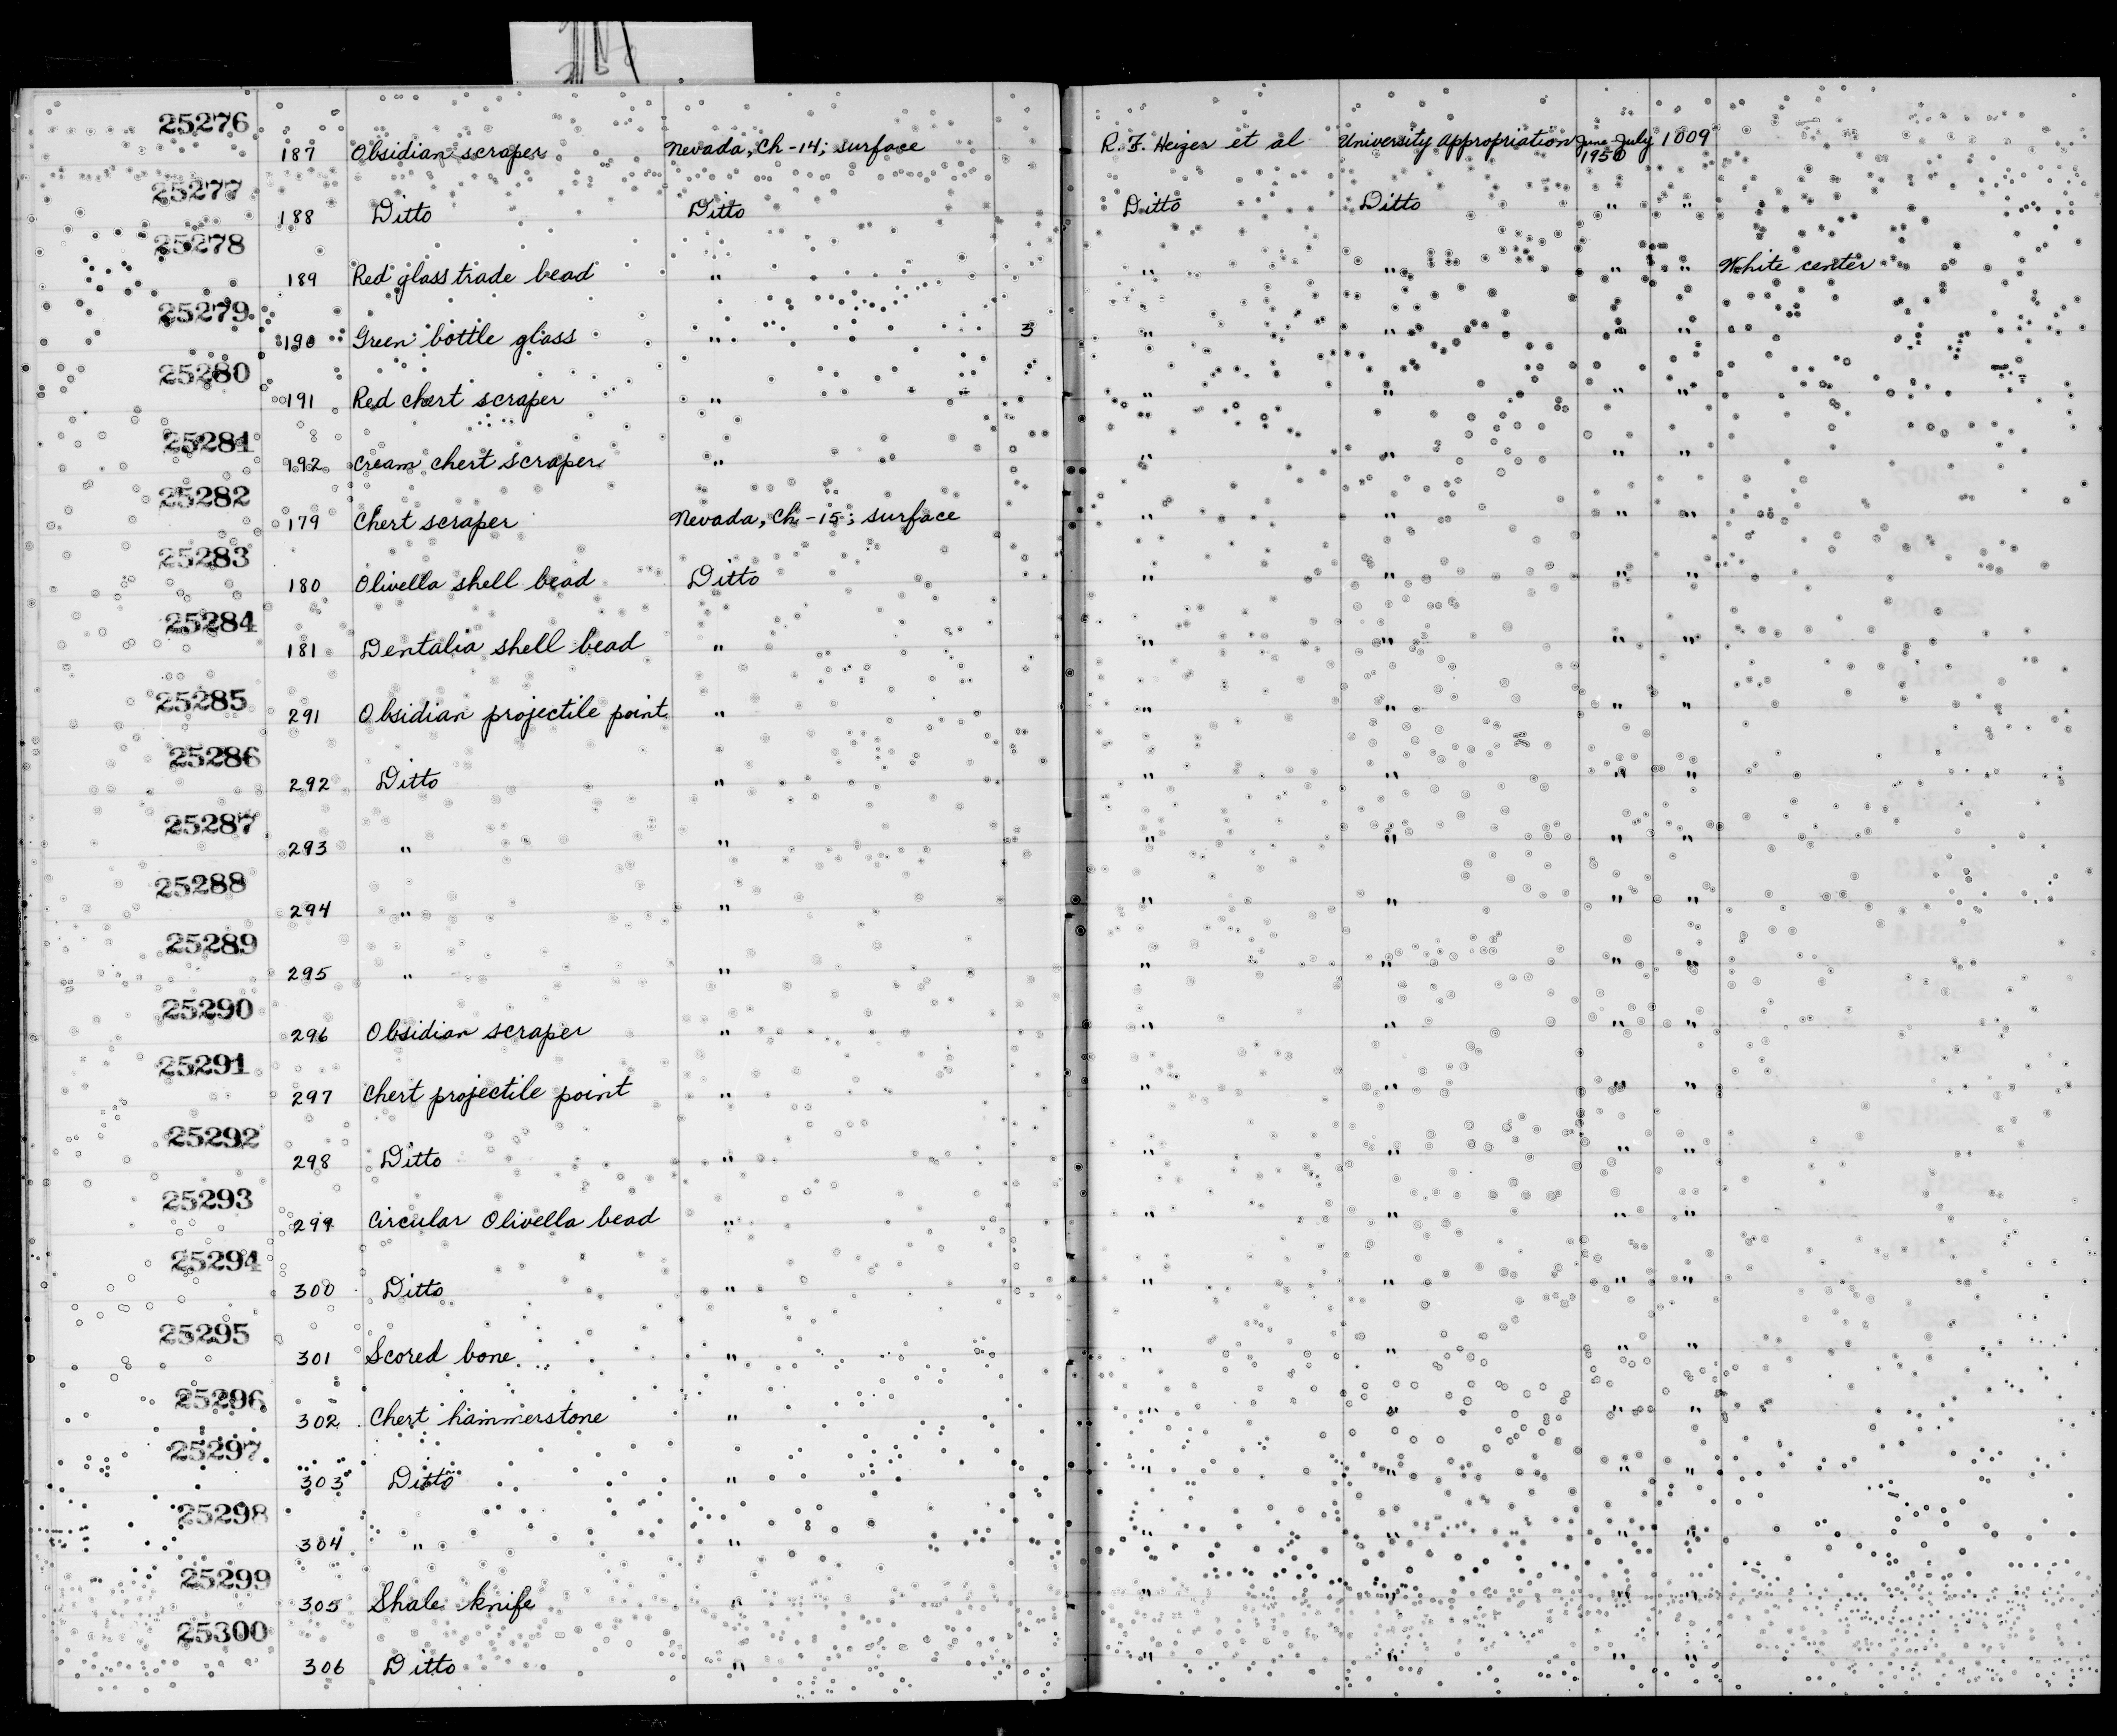 25276 187 Obsidian scraper Nevada, Ch-14; surface R. F. Heizer et al University Appropriation June-July 1950 1009
25277 188 Ditto Ditto Ditto Ditto " "
25278 189 Red glass trade bead " " " " " White center
25279 190 Green bottle glass " 3 " " " "
25280 191 Red chert scraper " " " " "
25281 192 Cream chert scraper " " " " "
25282 179 Chert scraper Nevada, Ch-15; surface " " " "
25283 180 Olivella shell bead Ditto " " " "
25284 181 Dentalia shell bead " " " " "
25285 291 Obsidian projectile point " " " " "
25286 292 Ditto " " " " "
25287 293 " " " " " "
25288 294 " " " " " "
25289 295 " " " " " "
25290 296 Obsidian scraper " " " " "
25291 297 Chert projectile point " " " " "
25292 298 Ditto " " " " "
25293 299 Circular Olivella bead " " " " "
25294 300 Ditto " " " " "
25295 301 Scored bone " " " " "
25296 302 Chert hammerstone " " " " "
25297 303 Ditto " " " " "
25298 304 " " " " " "
25299 305 Shale knife " " " " "
25300 306 Ditto " " " " "